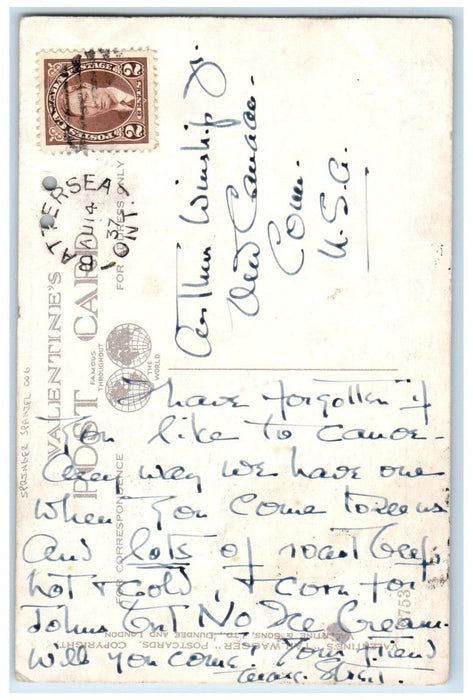 POSTES CANADA POSTAGE
2 2
BATTERSEA
AU 14
37
ONT.
Arthur Winship Jr.
New Canaan.
Conn.
U.S.A.
VALENTINE'S
POST CARD
FOR ADDRESS ONLY
FAMOUS
THROUGHOUT
THE
WORLD
FOR CORRESPONDENCE
SPRINGER SPANIEL 006
I have forgotten if
you like to canoe-
any way we have one
when you come to see us
and lots of roast beef,
hot & cold, & corn for
John but No Ice Cream.
Will you come. Your Friend
"TAIL WAGGER" POSTCARDS. COPYRIGHT
VALENTINE & SONS, LTD., DUNDEE AND LONDON